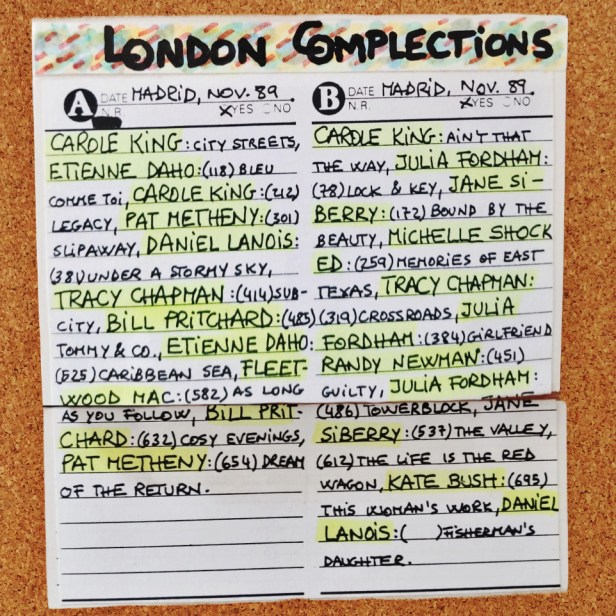 LONDON COMPLECTIONS
A DATE MADRID, NOV. 89
N.R. XYES NO
CAROLE KING: CITY STREETS,
ETIENNE DAHO:(118) BLEU
COMME TOI, CAROLE KING:(212)
LEGACY, PAT METHENY:(301)
SLIPAWAY, DANIEL LANOIS:
(381) UNDER A STORMY SKY,
TRACY CHAPMAN:(414) SUB-
CITY, BILL PRITCHARD:(485)
TOMMY & CO., ETIENNE DAHO:
(525) CARIBBEAN SEA, FLEET-
WOOD MAC:(582) AS LONG
AS YOU FOLLOW, BILL PRIT-
CHARD:(632) COSY EVENINGS,
PAT METHENY:(654) DREAM
OF THE RETURN.
B DATE MADRID, NOV. 89.
N.R. XYES NO
CAROLE KING: AIN'T THAT
THE WAY, JULIA FORDHAM:
(78) LOCK & KEY, JANE SI-
BERRY:(172) BOUND BY THE
BEAUTY, MICHELLE SHOCK
ED:(259) MEMORIES OF EAST
TEXAS, TRACY CHAPMAN:
(319) CROSSROADS, JULIA
FORDHAM:(384) GIRLFRIEND
RANDY NEWMAN:(451)
GUILTY, JULIA FORDHAM:
(486) TOWERBLOCK, JANE
SIBERRY:(537) THE VALLEY,
(612) THE LIFE IS THE RED
WAGON, KATE BUSH:(695)
THIS WOMAN'S WORK, DANIEL
LANOIS:( ) FISHERMAN'S
DAUGHTER.